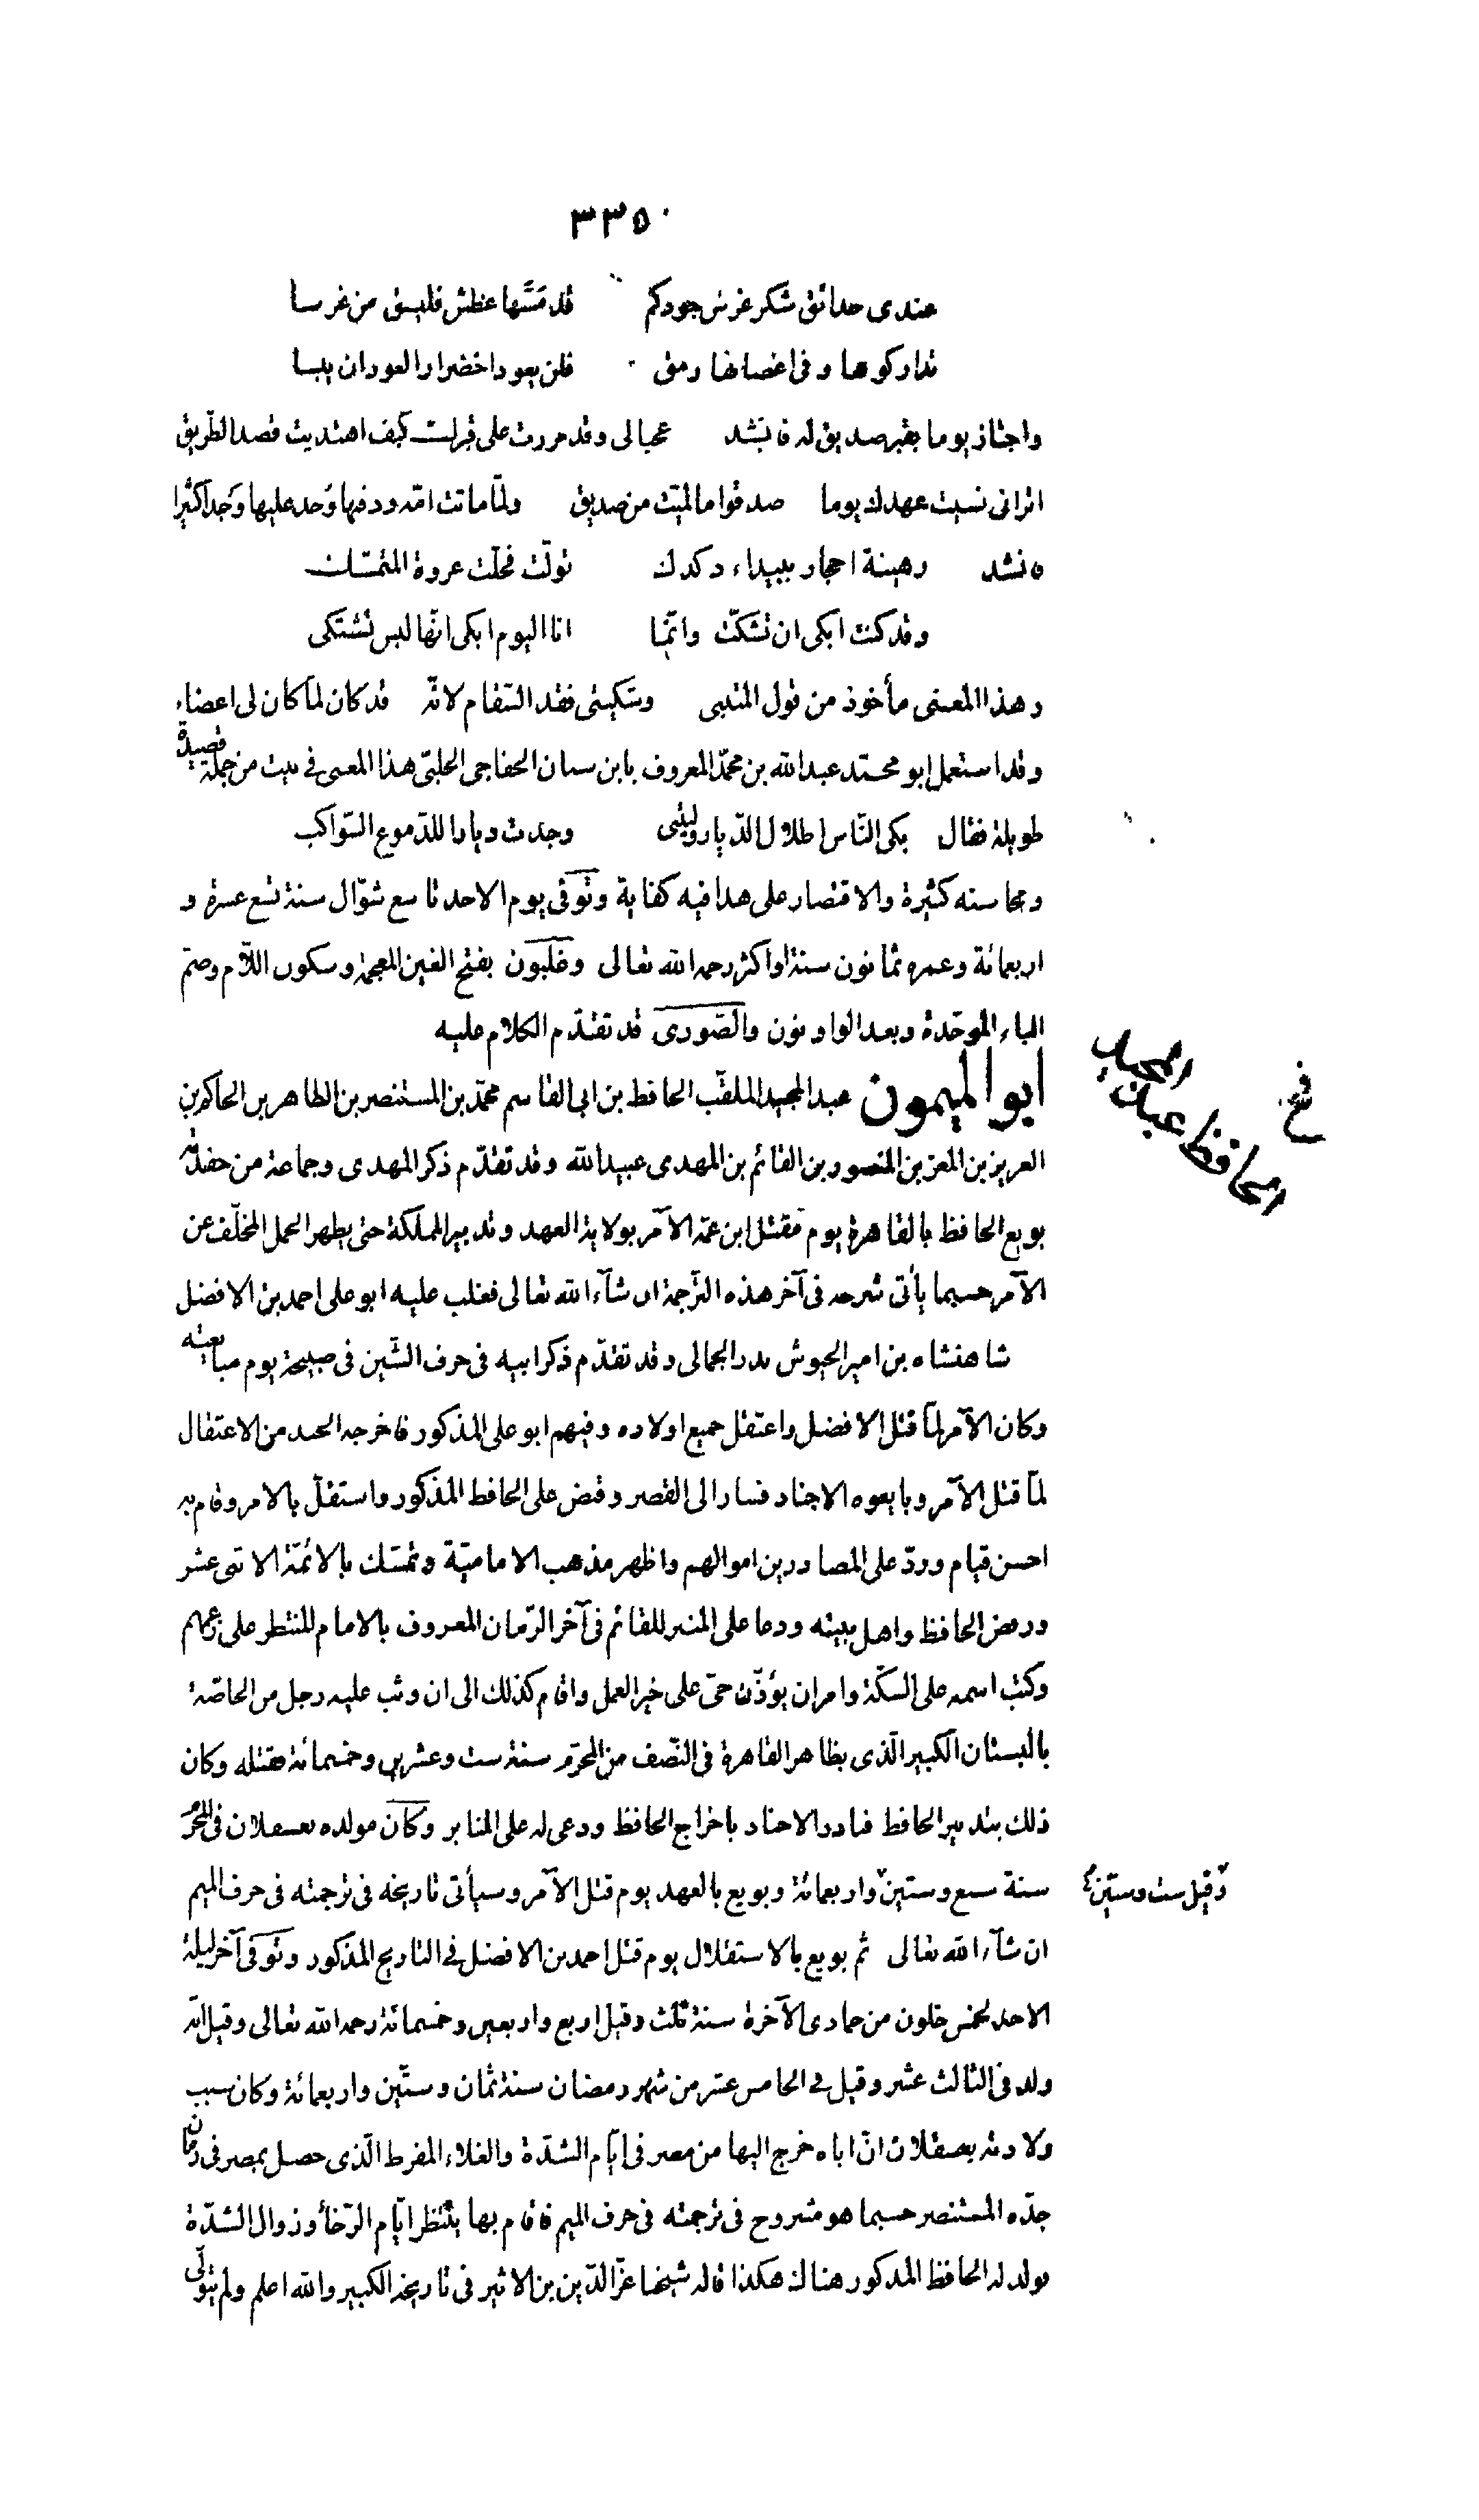 ٣٣٥٠
عندى حدائق شكر غرس جودكم قد مسّها عطش فليسق من غرسا
تداركوها وفى اغصانها رمق فلن يعود اخضرار العود ان يبسا
واجتاز يوما بقبر صديق له فانشد عجبا لى وقد مررت على قبرك كيف اهتديت قصد الطّريق
اترانى نسيت عهدك يوما صدقوا ما لميّت من صديق ولمّا ماتت امّه ودفنها وجد عليها وَجدا كثيرا
فانشد رهينة احجار ببيداء دكدك تولّت فحلّت عروة المتمسّك
وقد كنت ابكى ان تشكّت وانّما انا اليوم ابكى انّها ليس تشتكى
وهذا المعنى مأخوذ من قول المتنبى وشكيتى فقد السّقام لانّه قد كان لما كان لى اعضاء
وقد استعمل ابو محمّد عبد الله بن محمّد المعروف بابن سنان الخفاجى الحلبىّ هذا المعنى فى بيت من جملة قصيدة
طويلة فقال بكى النّاس اطلال الدّيار وليتنى وجدت ديارا للدّموع السّواكب
ومحاسنه كثيرة والاقتصار على هذا فيه كفاية وتوفّى يوم الاحد تاسع شوّال سنة تسع عشرة و
اربعمائة وعمره ثمانون سنة او اكثر رحمه الله تعالى وغلبون بفتح الغين المعجمة وسكون اللّام وضمّ
الباء الموحّدة وبعد الواو نون والصّورى قد تقدّم الكلام عليه
ابو الميمون عبد المجيد الملقّب الحافظ بن ابى القاسم محمّد بن المستنصر بن الظاهر بن الحاكم بن
العزيز بن المعز بن المنصور بن القائم بن المهدى عبيد الله وقد تقدّم ذكر المهدى وجماعة من حفدته
بويع الحافظ بالقاهرة يوم مقتل ابن عمّه الآمر بولاية العهد وتدبير المملكة حتى يظهر الحمل المخلّف عن
الآمر حسبما يأتى شرحه فى آخر هذه التّرجمة ان شآء الله تعالى فغلب عليه ابو على احمد بن الافضل
شاهنشاه بن امير الجيوش بدر الجمالى وقد تقدّم ذكر ابيه فى حرف الشّين فى صبيحة يوم مبايعته
وكان الآمر لمّا قتل الافضل واعتقل جميع اولاده وفيهم ابو على المذكور فاخرجه الجند من الاعتقال
لمّا قتل الآمر وبايعوه الاجناد فسار الى القصر وقبض على الحافظ المذكور واستقلّ بالامر وقام به
احسن قيام وردّ على المصادرين اموالهم واظهر مذهب الاماميّة وتمسّك بالائمّة الاثنى عشر
ورفض الحافظ واهل بيته ودعا على المنبر للقائم فى آخر الزّمان المعروف بالامام المنتظر على زعمهم
وكتب اسمه على السكّة وامر ان يؤذّن حىّ على خير العمل واقام كذلك الى ان وثب عليه رجل من الخاصّة
بالبستان الكبير الّذى بظاهر القاهرة فى النّصف من المحرّم سنة ست وعشرين وخمسمائة فقتله وكان
ذلك بتدبير الحافظ فبادر الاجناد باخراج الحافظ ودعى له على المنابر وكان مولده بعسقلان فى المحرّم
سنة سبع وستين واربعمائة وبويع بالعهد يوم قتل الآمر وسيأتى تاريخه فى ترجمته فى حرف الميم
ان شآء الله تعالى ثم بويع بالاستقلال يوم قتل احمد بن الافضل فى التاريخ المذكور وتوفّى آخر ليلة
الاحد لخمس خلون من جمادى الآخرة سنة ثلث وقيل اربع واربعين وخمسمائة رحمه الله تعالى وقيل انّه
ولد فى الثالث عشر وقيل فى الخامس عشر من شهر رمضان سنة ثمان وستّين واربعمائة وكان سبب
ولادته بعسقلان انّ اباه خرج اليها من مصر فى ايّام الشدّة والغلاء المفرط الّذى حصل بمصر فى زمان
جدّه المستنصر حسبما هو مشروح فى ترجمته فى حرف الميم فاقام بها ينتظر ايّام الرّخاء وزوال الشدّة
فولد له الحافظ المذكور هناك هكذا قاله شيخنا عزّ الدّين بن الاثير فى تاريخه الكبير والله اعلم ولم يتولّ
وقيل ست وستين